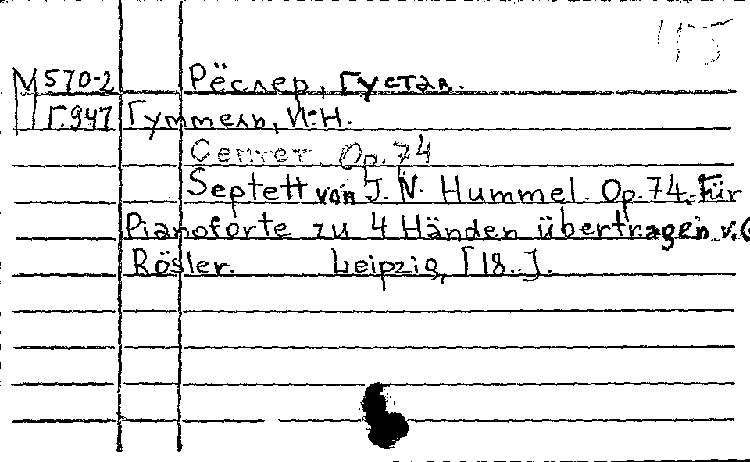 М 570-2 Рёслер, Густав.
Г.947 Гуммель, И.-Н.
Септет. Op. 74
Septett von J. N. Hummel. Op. 74. Für
Pianoforte zu 4 Händen übertragen v. G
Rösler. Leipzig, [18..].